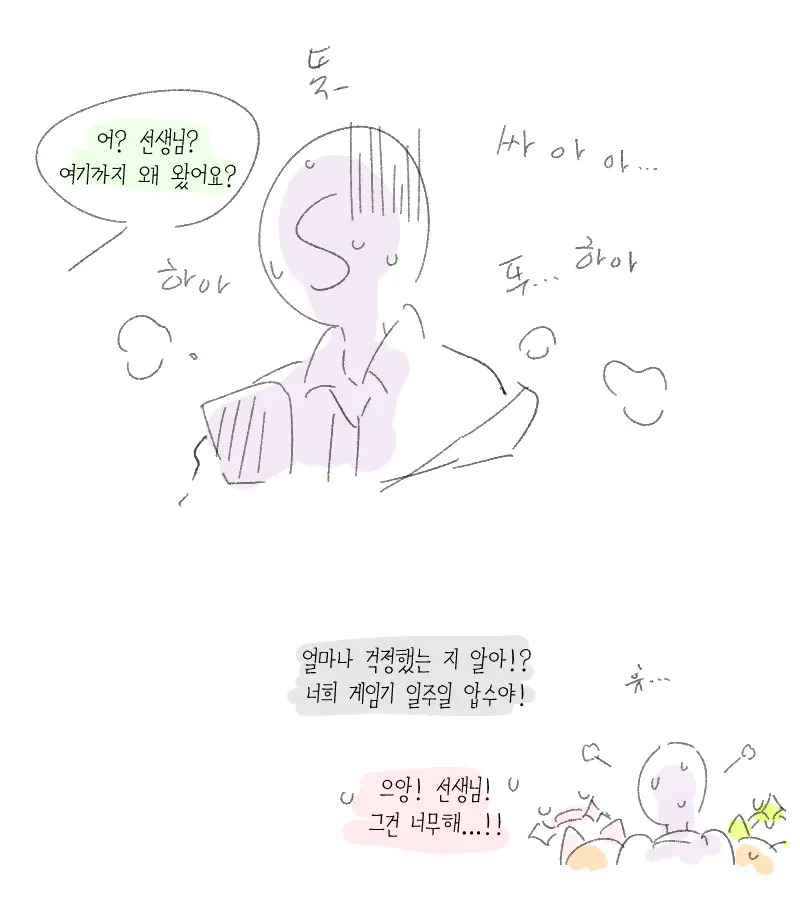 뚝-
어? 선생님?
여기까지 왜 왔어요?
싸 아 아...
하아
뚝...
하아
얼마나 걱정했는 지 알아!?
너희 게임기 일주일 압수야!
휴...
으앙! 선생님!
그건 너무해...!!